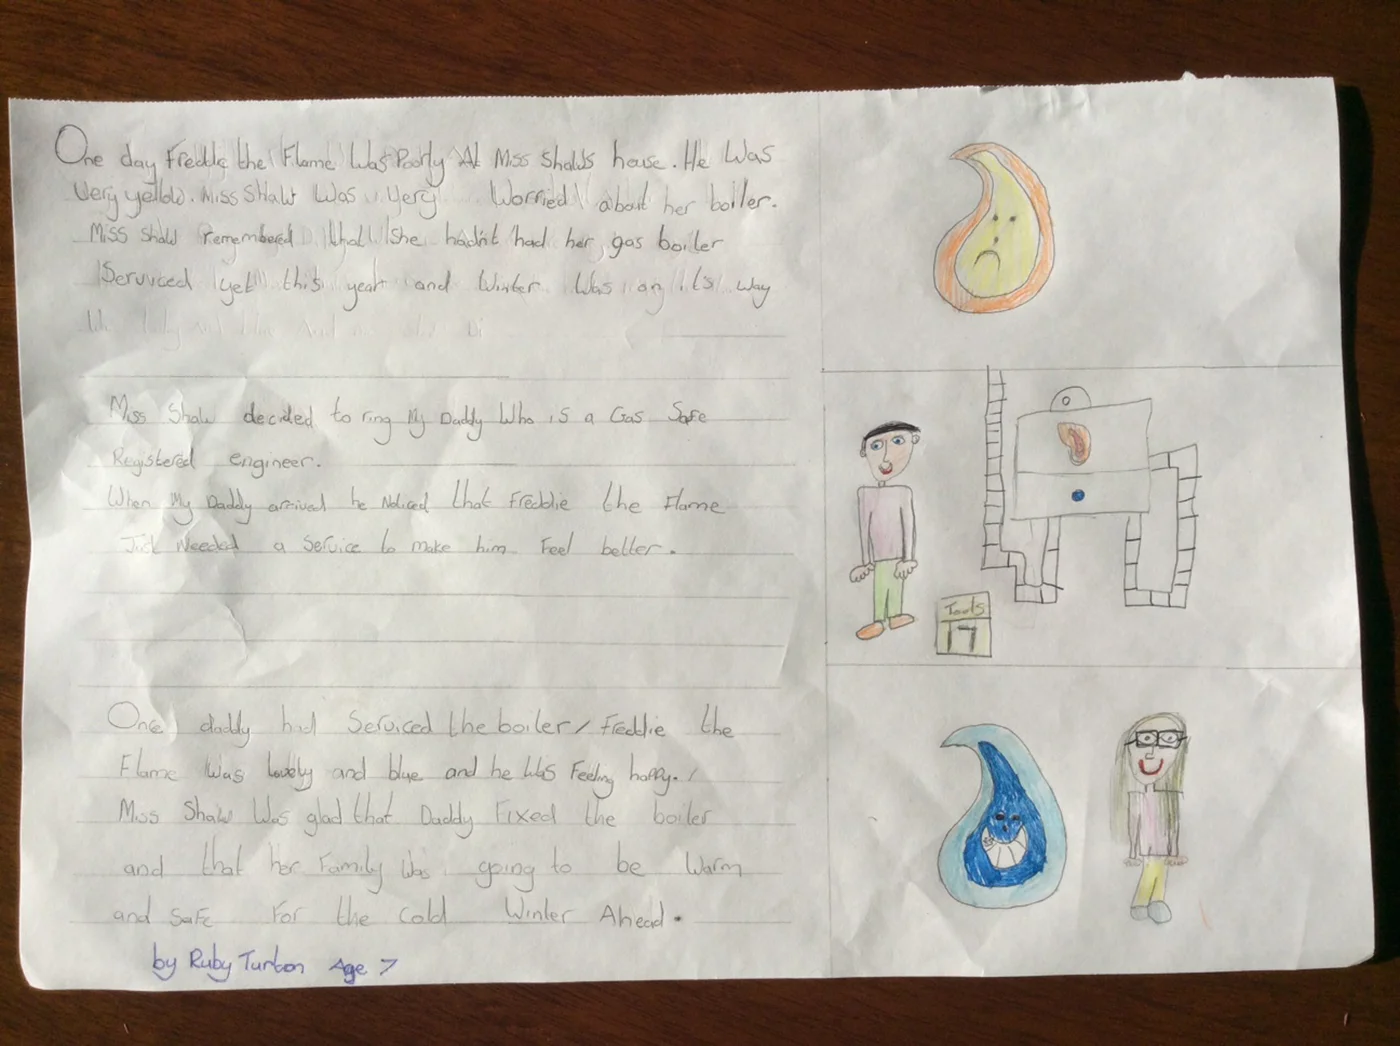 One day Freddie the Flame Was Poorly At Miss Shaws house. He Was
Very yellow. Miss Shaw Was Very Worried about her boiler.
Miss Shaw remembered that She hadnt had her gas boiler
Serviced yet this year and Winter Was on its way
Miss Shaw decided to ring My Daddy Who is a Gas Safe
Registered engineer.
When My Daddy arrived he Noticed that Freddie the Flame
Just Needed a Service to make him Feel better.
Tools
Once daddy had Serviced the boiler / Freddie the
Flame Was lovely and blue and he Was Feeling happy. /
Miss Shaw Was glad that Daddy Fixed the boiler
and that her Family Was going to be Warm
and Safe For the Cold Winter Ahead.
by Ruby Turton Age 7